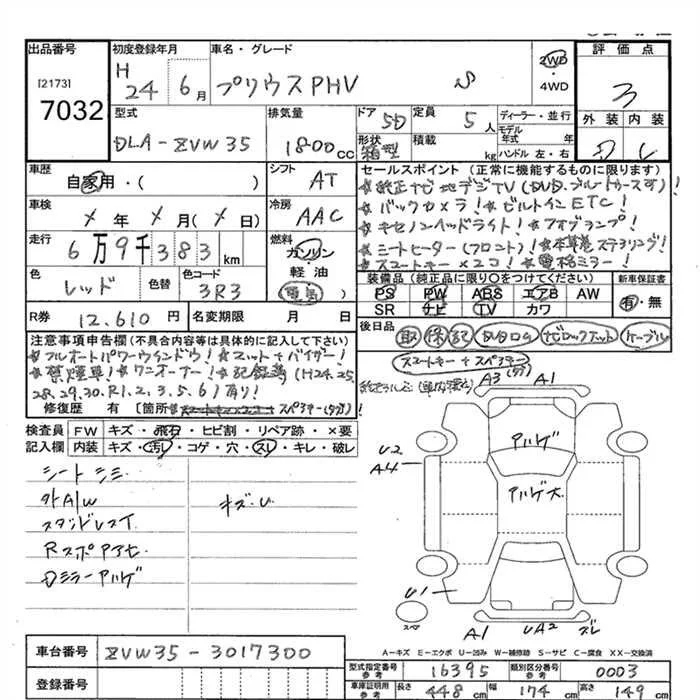 出品番号 初度登録年月 車名・グレード 評価点
[2173] 7032 H 24年 6月 プリウスPHV S 2WD・4WD 3
型式 排気量 ドア 5D 定員 5人 ディーラー・並行 外装 内装
DLA-ZVW35 1800cc 形状 箱型 積載 kg モデル年式 年 ハンドル 左・右
車歴 自家用・( ) シフト AT
セールスポイント(正常に機能するものに限ります)
☆純正ナビ 地デジTV(DVD.ブルートゥース可)!
☆バックカメラ!☆ビルトインETC!
☆キセノンヘッドライト!☆フォグランプ!
☆シートヒーター(フロント)!☆本革巻ステアリング!
☆スマートキー×2コ!☆電格ミラー!
車検 メ年 メ月(メ日) 冷房 AAC
走行 6万9千383km 燃料 ガソリン・軽油(電気)
色 レッド 色替 色コード 3R3
装備品(純正品に限り〇をつけてください) 新車保証書
PS PW ABS エアB AW 有・無
SR ナビ TV カワ
R券 12,610円 名変期限 月 日
後日品 取 保 記 DVDロム ナビロックナット ケーブル
スマートキー+スペアキー
注意事項申告欄(不具合内容等は具体的に記入して下さい)
☆フルオートパワーウインドウ!☆マット+バイザー!
☆禁煙車!☆ワンオーナー!☆記録簿(H24.25.
28.29.30.R1.2.3.5.6)有り!
修復歴 有 [箇所
検査員記入欄 FW キズ・飛石・ヒビ割・リペア跡・×要
内装 キズ・汚レ・コゲ・穴・スレ・キレ・破レ
シートシミ
外A/W キズ・U
Dミラーアルゲ
A3 A1
アルゲ
アルゲ大
U2
A4
U1
スペア
A1 UA2 ズレ
A-キズ E-エクボ U-凹み W-補修跡 S-サビ C-腐食 XX-交換済
車台番号 ZVW35-3017300
登録番号
型式指定番号 参考 16395 類別区分番号 参考 0003
車庫証明用 参考 長さ 448cm 幅 174cm 高さ 149cm